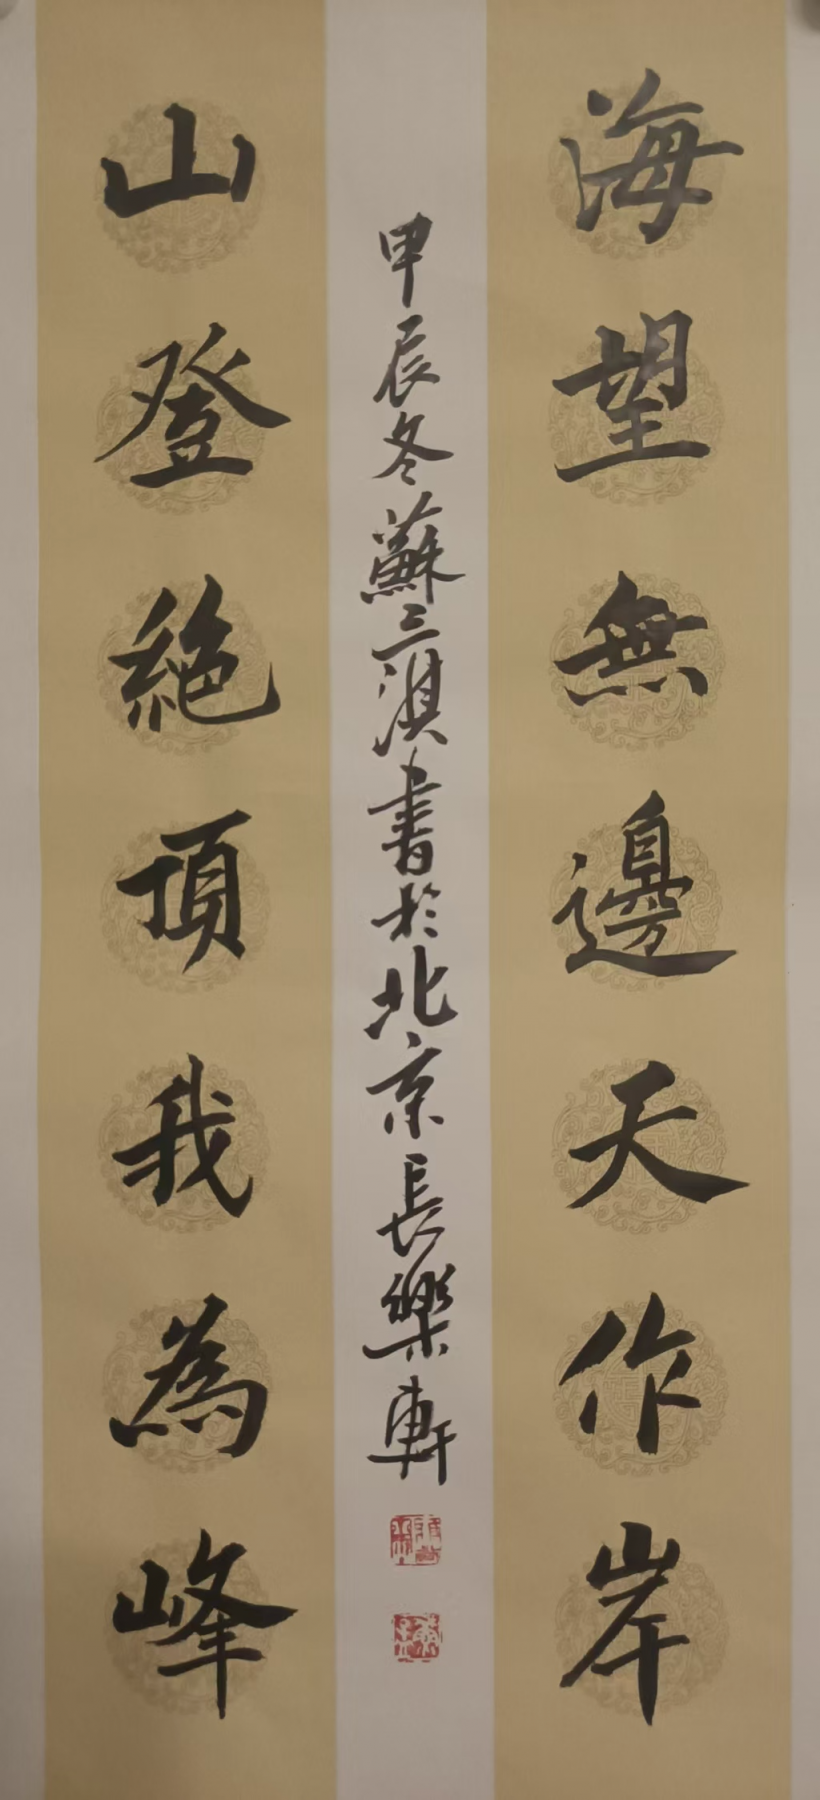 海望無邊天作岸
甲辰冬蘇三淇書於北京長樂軒
山登絕頂我為峰